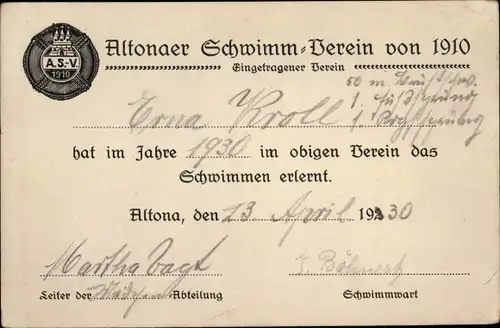 A.S.-V.
1910
Altonaer Schwimm-Verein von 1910
Eingetragener Verein
50 m. Brustschw.
1. Fußsprung
1. Kopfsprung
Erna Kroll
hat im Jahre 1930 im obigen Verein das
Schwimmen erlernt.
Altona, den 13 April 1930
Martha Vagt
Leiter der Mädchen Abteilung
Schwimmwart